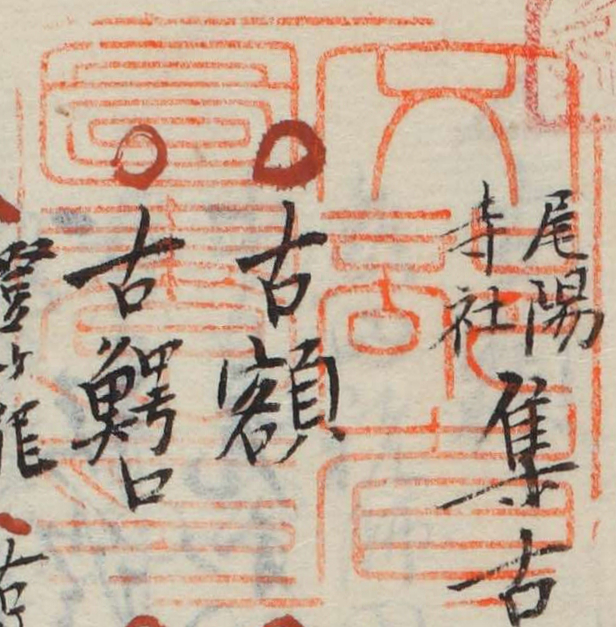 尾陽
寺社
集古
古額
古鰐口